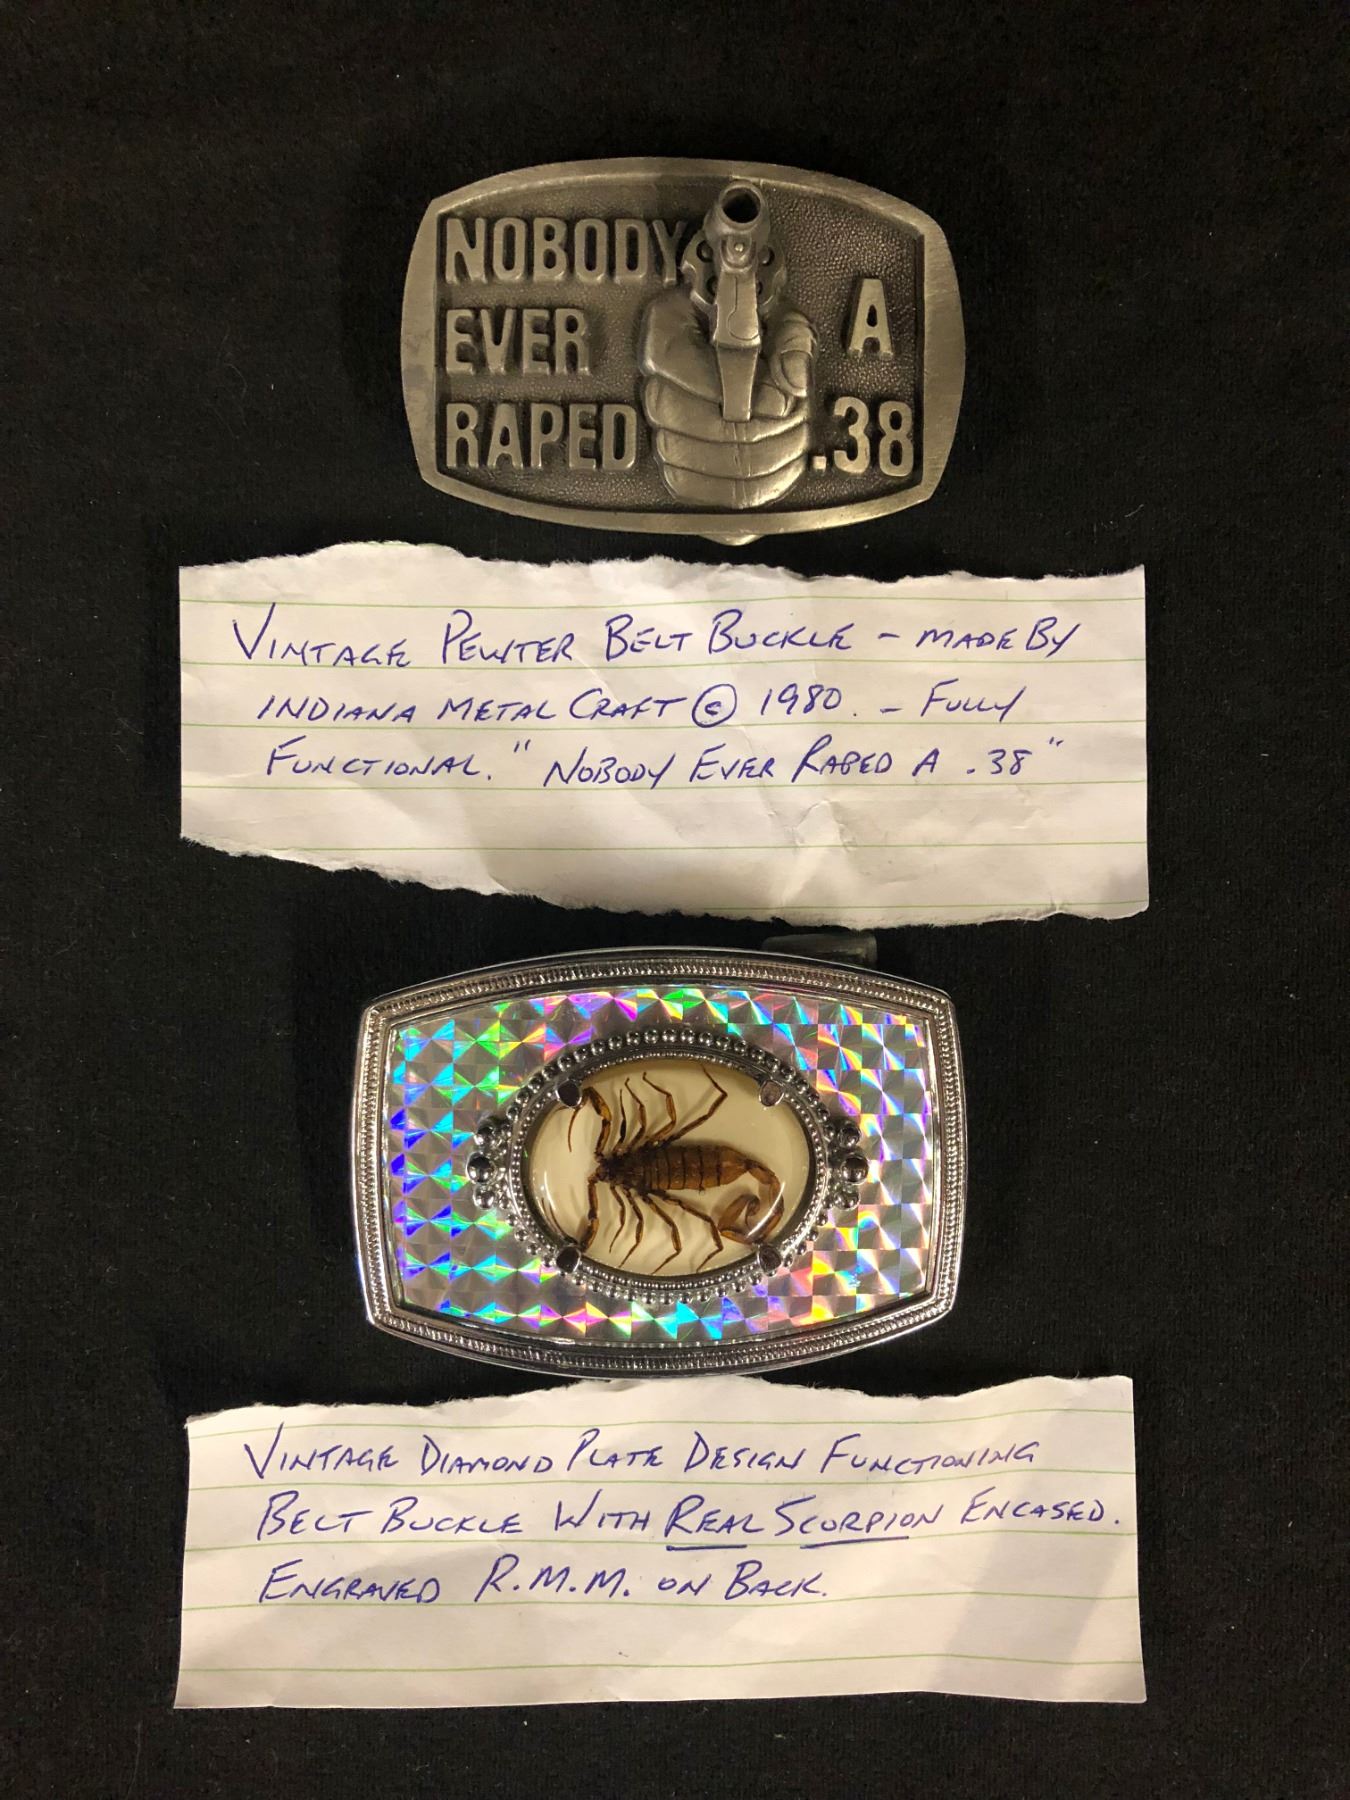 NOBODY
EVER
RAPED
A
.38
VINTAGE PEWTER BELT BUCKLE - MADE BY
INDIANA METAL CRAFT © 1980. - FULLY
FUNCTIONAL. " NOBODY EVER RAPED A .38 "
VINTAGE DIAMOND PLATE DESIGN FUNCTIONING
BELT BUCKLE WITH REAL SCORPION ENCASED.
ENGRAVED R.M.M. ON BACK.